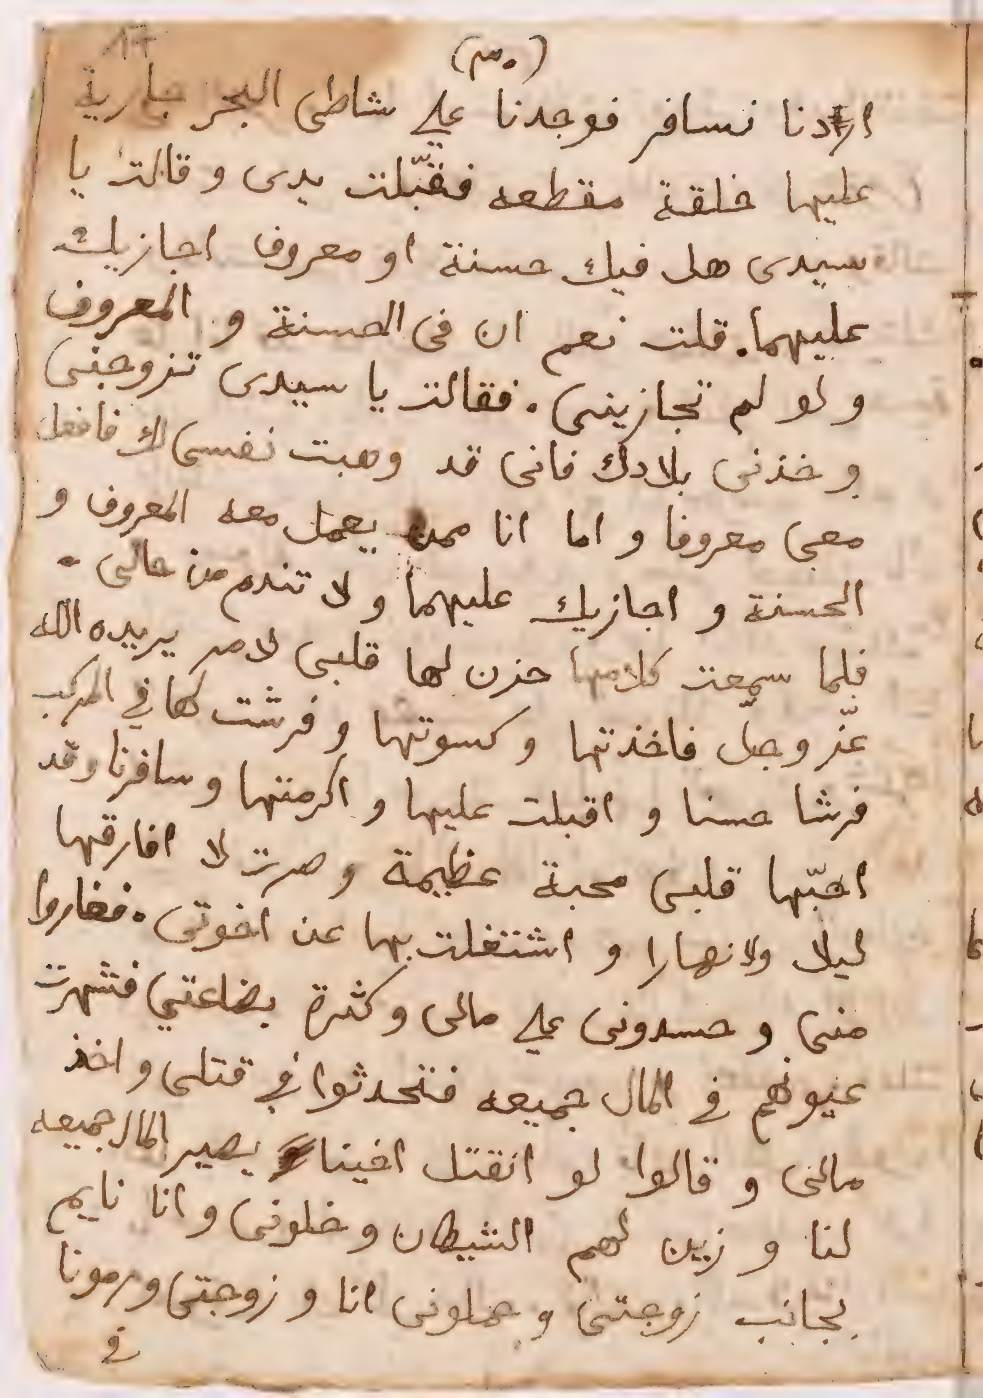 17
(٣٠)
اردنا نسافر فوجدنا علي شاطى البحر جارية
عليها خلقة مقطعه فقبّلت يدى و قالت يا
سيدى هل فيك حسنة او معروف اجازيك
عليهما. قلت نعم ان فى الحسنة و المعروف
و لو لم تجازينى . فقالت يا سيدى تزوجنى
و خذنى بلادك فانى قد وهبت نفسى لك فافعل
معى معروفا و اما انا ممن يعمل معه المعروف و
الحسنة و اجازيك عليهما و لا تندم من حالى .
فلما سمعت كلامها حزن لها قلبى لامر يريده الله
عزّ وجل فاخذتها و كسوتها و فرشت لها في المركب
فرشا حسنا و اقبلت عليها و اكرمتها و سافرنا وقد
احبّها قلبى محبة عظيمة و صرت لا افارقها
ليلا ولا نهارا و اشتغلت بها عن اخوتى . فغاروا
منى و حسدونى علي مالى و كثرة بضاعتي فشهرت
عيونهم في المال جميعه فتحدثوا في قتلى و اخذ
مالى و قالوا لو انقتل اخينا يصير المال جميعه
لنا و زين لهم الشيطان و خلونى و انا نايم
بجانب زوجتى و حملونى انا و زوجتى ورمونا
في